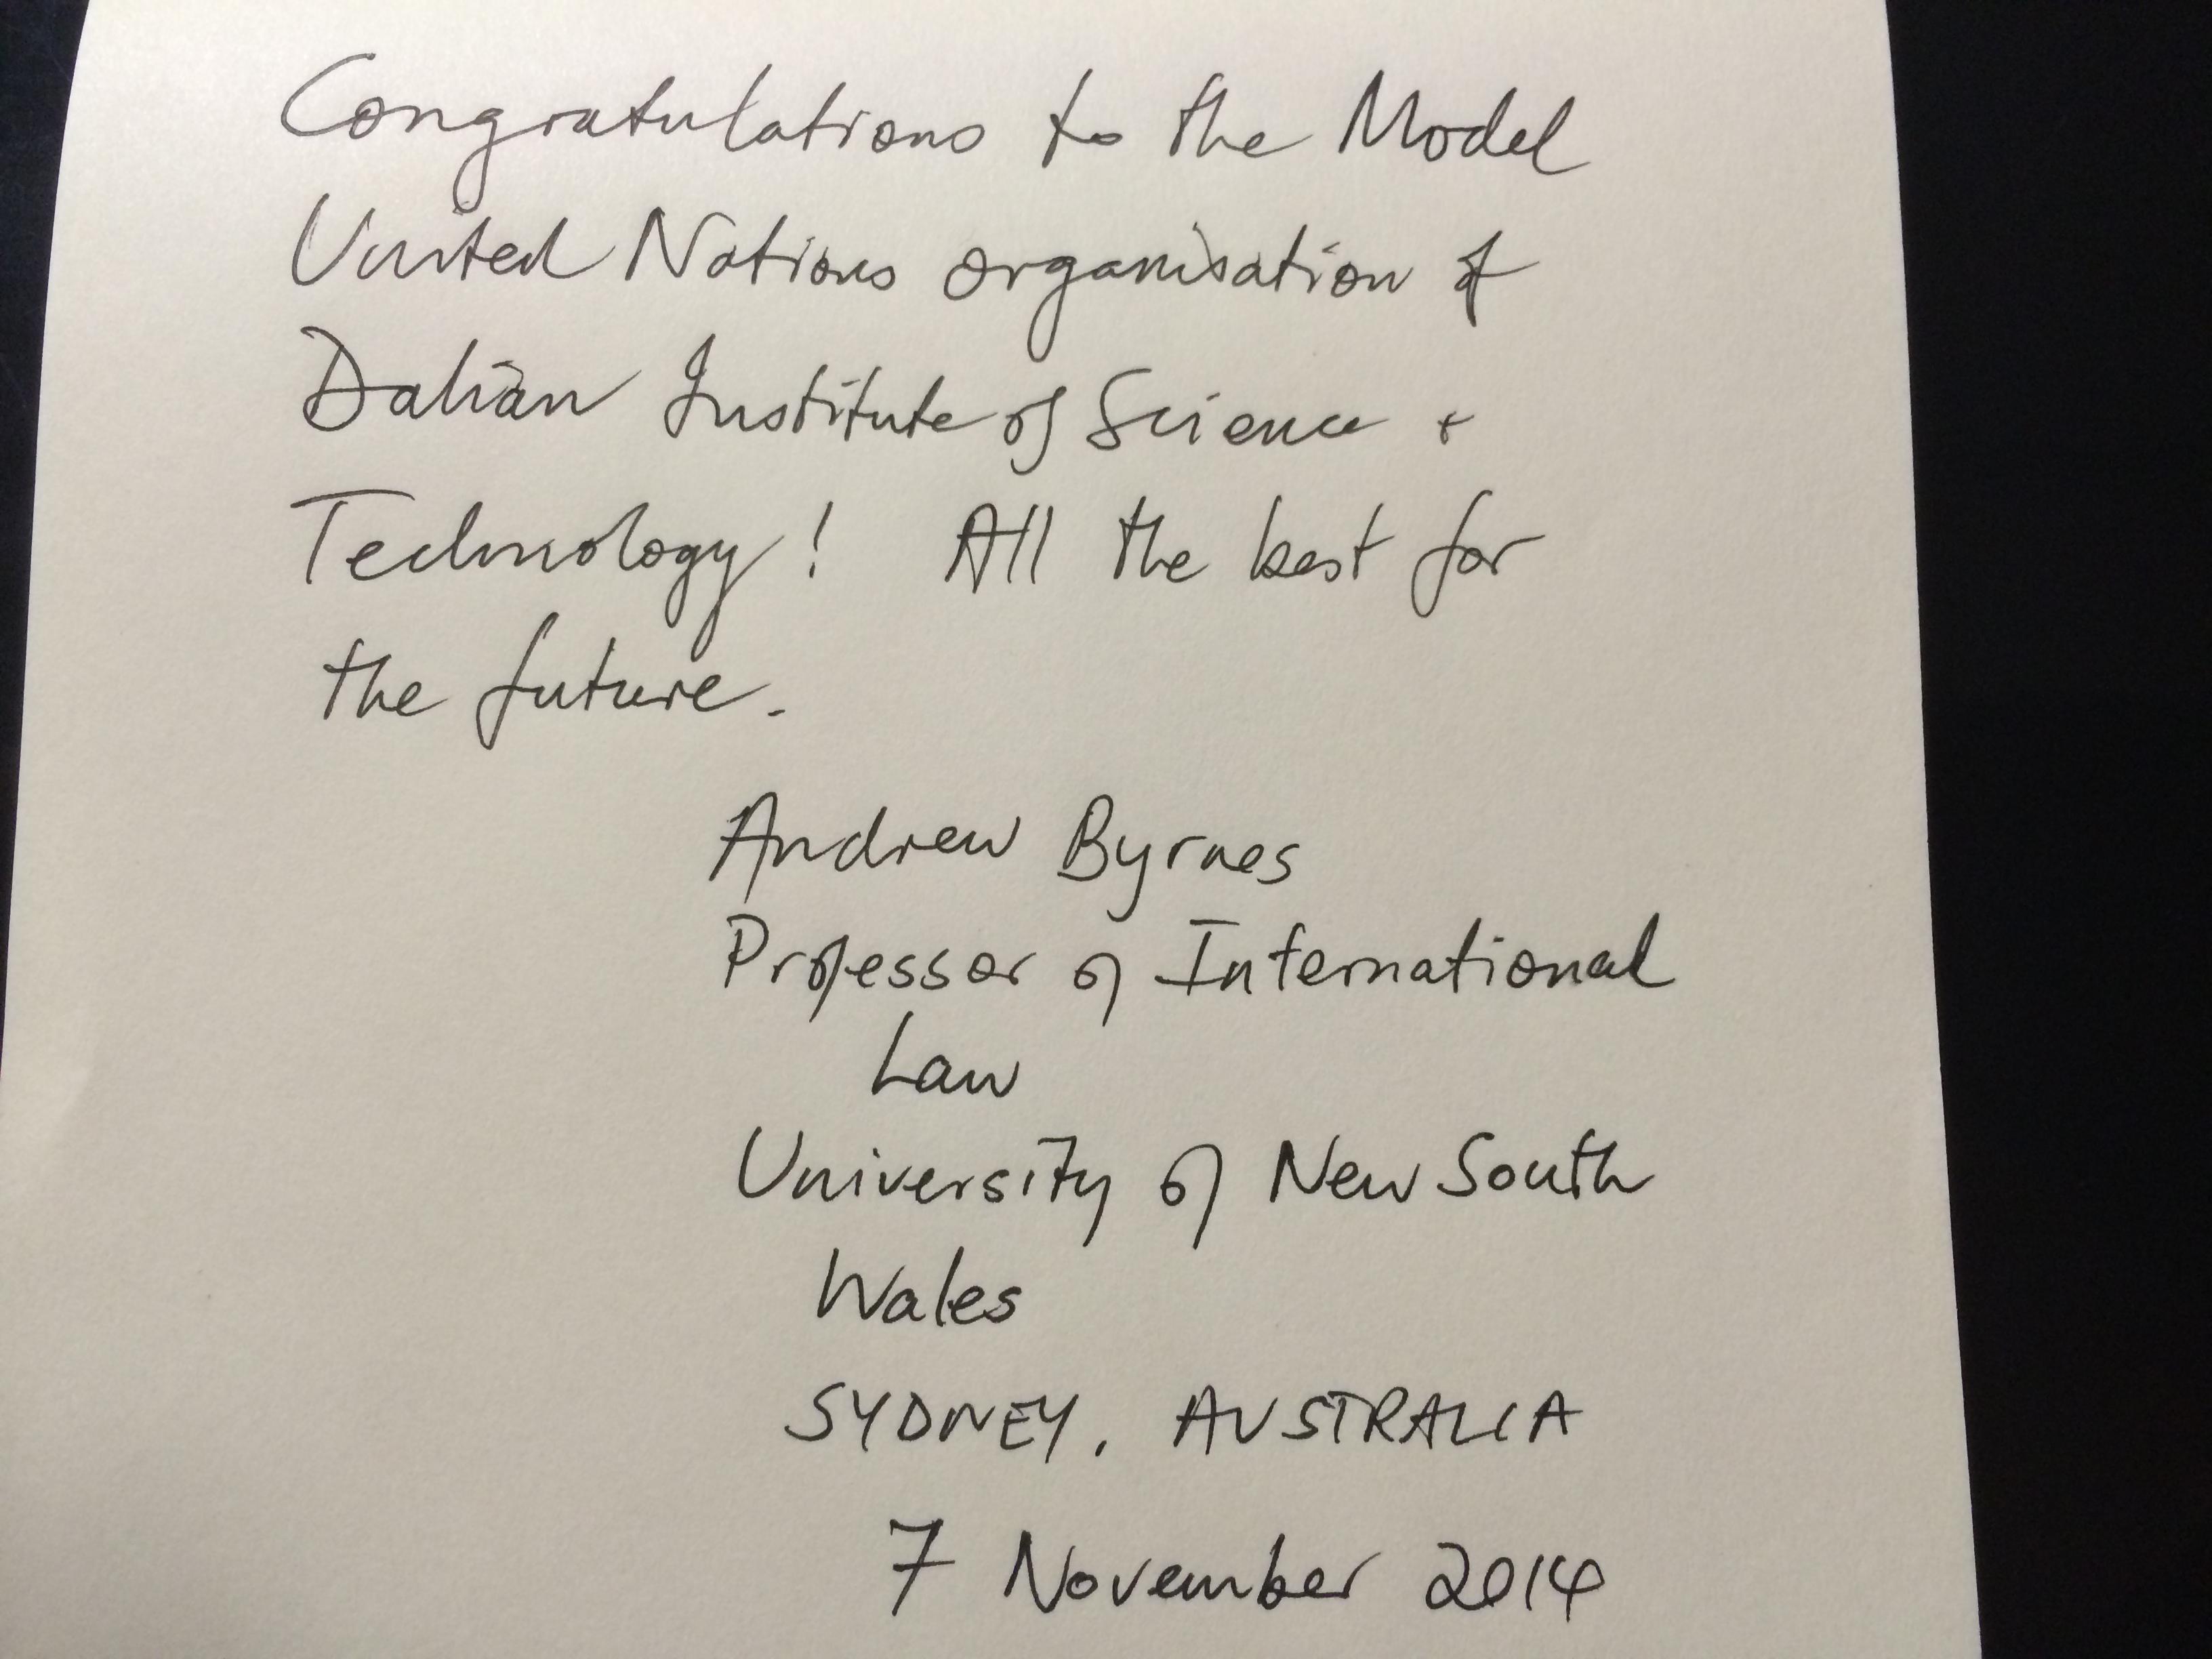 Congratulations to the Model
United Nations organisation of
Dalian Institute of Science +
Technology! All the best for
the future.
Andrew Byrnes
Professor of International
Law
University of New South
Wales
SYDNEY, AUSTRALIA
7 November 2014